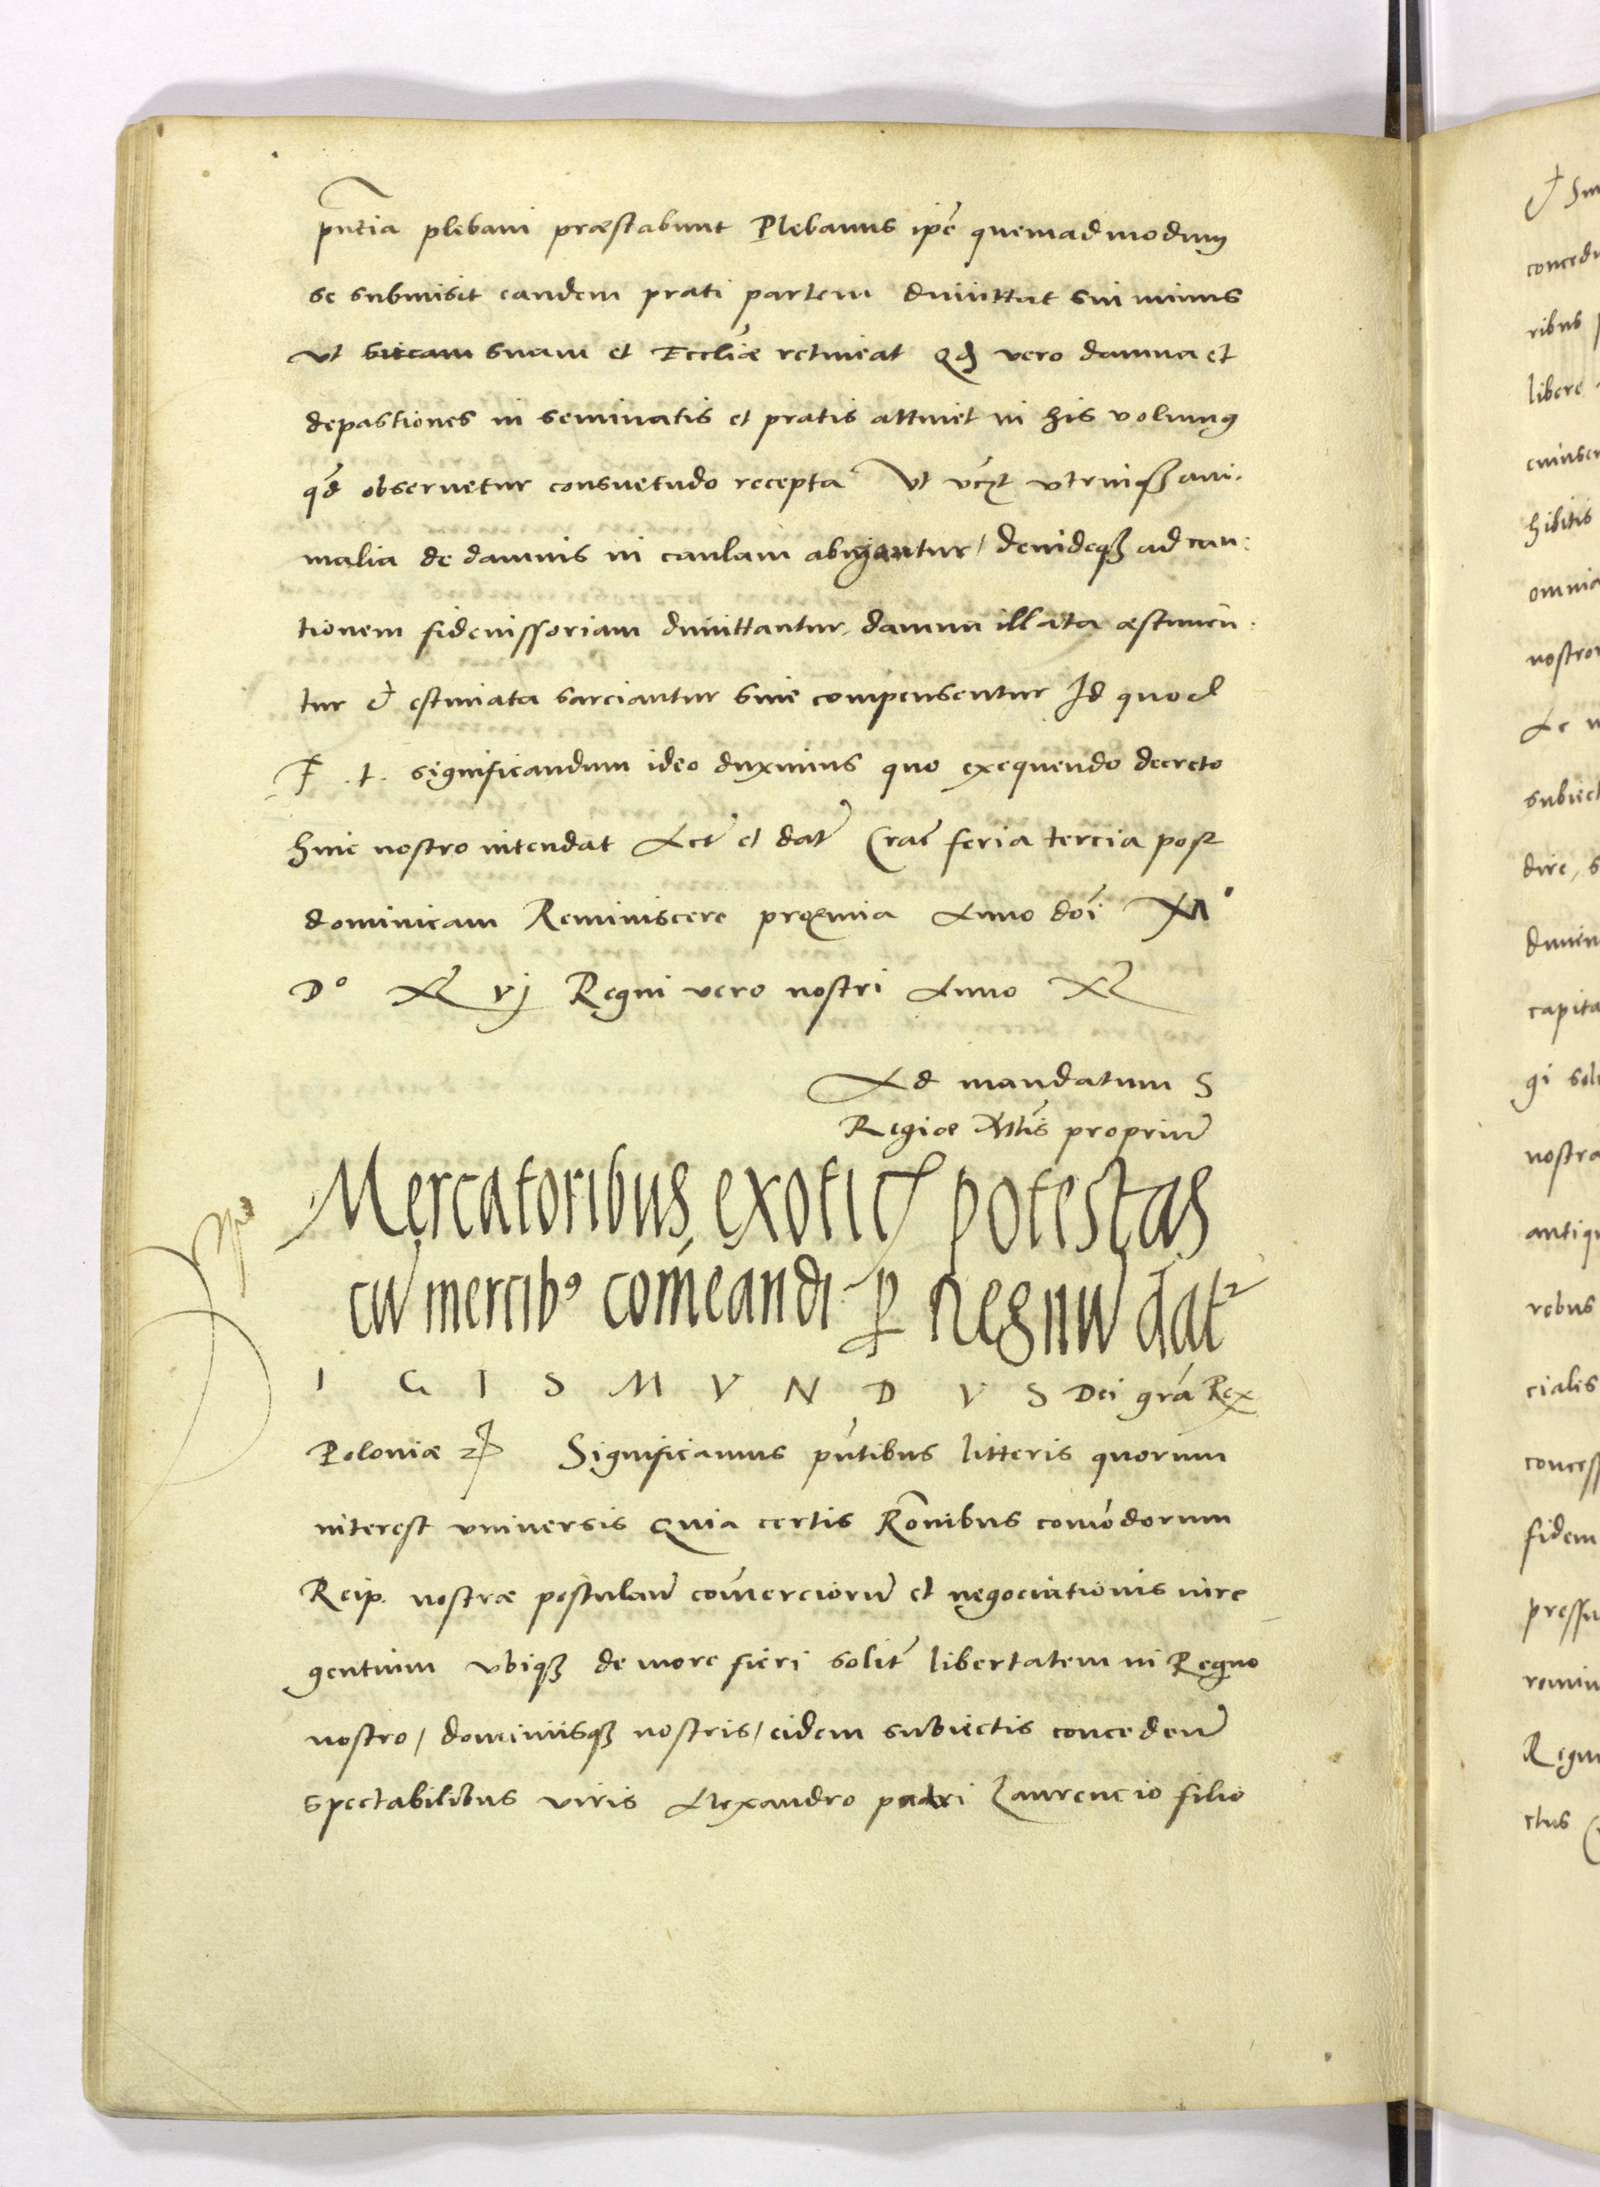 pn̄tia plebani præstabunt Plebanus ipē quemadmodum
se submisit eandem prati partem dimittat sin minus
Vt sitcam suam et Eccliæ retineat Qd vero damna et
depastiones in seminatis et pratis attinet in his volumus
qd observetur consuetudo recepta Vt utriusq₃ ani-
malia de damnis in caulam abigantur / deindeq₃ ad cau:
tionem fideiussoriam dimittantur, damna illata æstimen:
tur & estimata sarciantur sive compensentur Id quod
F. t. significandum ideo duximus quo exequendo decreto
huic nostro intendat Act̄ et dat̄ Crac̄ feria tercia post
dominicam Reminiscere proxīmia Anno doī M
D° XX vj Regni vero nostri Anno XX
Ad mandatum S
Regiæ Mtis̄ propriū
Mercatoribus exotic̨ potestas
cū mercib⁹ com̄eandi ꝑ Regnū dat²
I G I S M V N D V S Dei grā Rex
Poloniæ ꝛc Significamus pn̄tibus litteris quorum
interest vniversis Quia certis Rōnibus com̄odorum
Reip. nostræ postulan̄ com̄erciorū et negociationis iure
gentium vbiq₃ de more fieri solit̄ libertatem in Regno
nostro / dominiisq₃ nostris / eidem subiectis conceden̄
spectabilibus viris Alexandro patri Laurencio filio